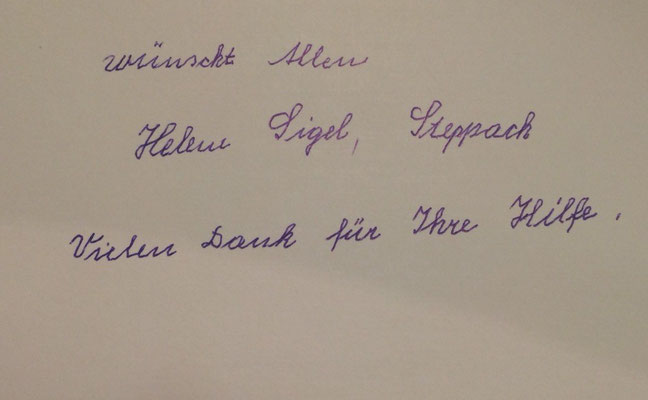 wünscht Allen
Helene Sigel, Steppach
Vielen Dank für Ihre Hilfe.